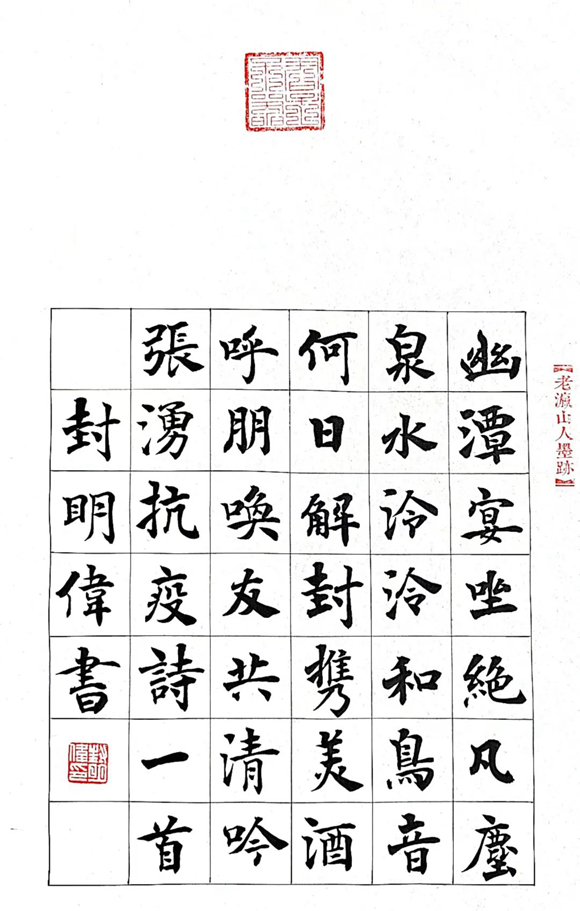 幽潭宴坐絶凡塵
泉水泠泠和鳥音
何日解封携美酒
呼朋喚友共清吟
張湧抗疫詩一首
封明偉書
老瀛山人墨跡